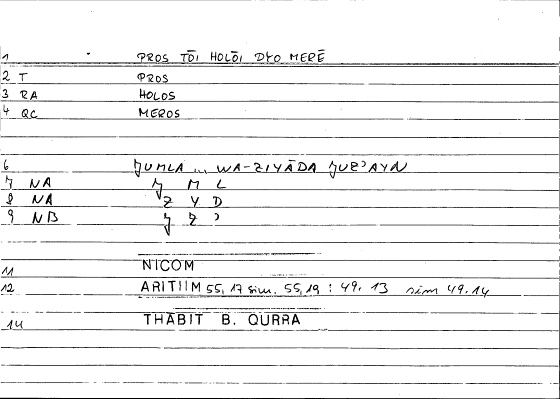 1 PROS TŌI HOLŌI DYO MERĒ
2 T PROS
3 RA HOLOS
4 QC MEROS
6 ǦUMLA ... WA-ZIYĀDA ǦUZʾAYN
7 NA Ǧ M L
8 NA Z Y D
9 NB Ǧ Z ʾ
11 NICOM
12 ARITIIM 55,17 sim. 55,19 : 49.13 sim 49.14
14 THĀBIT B. QURRA